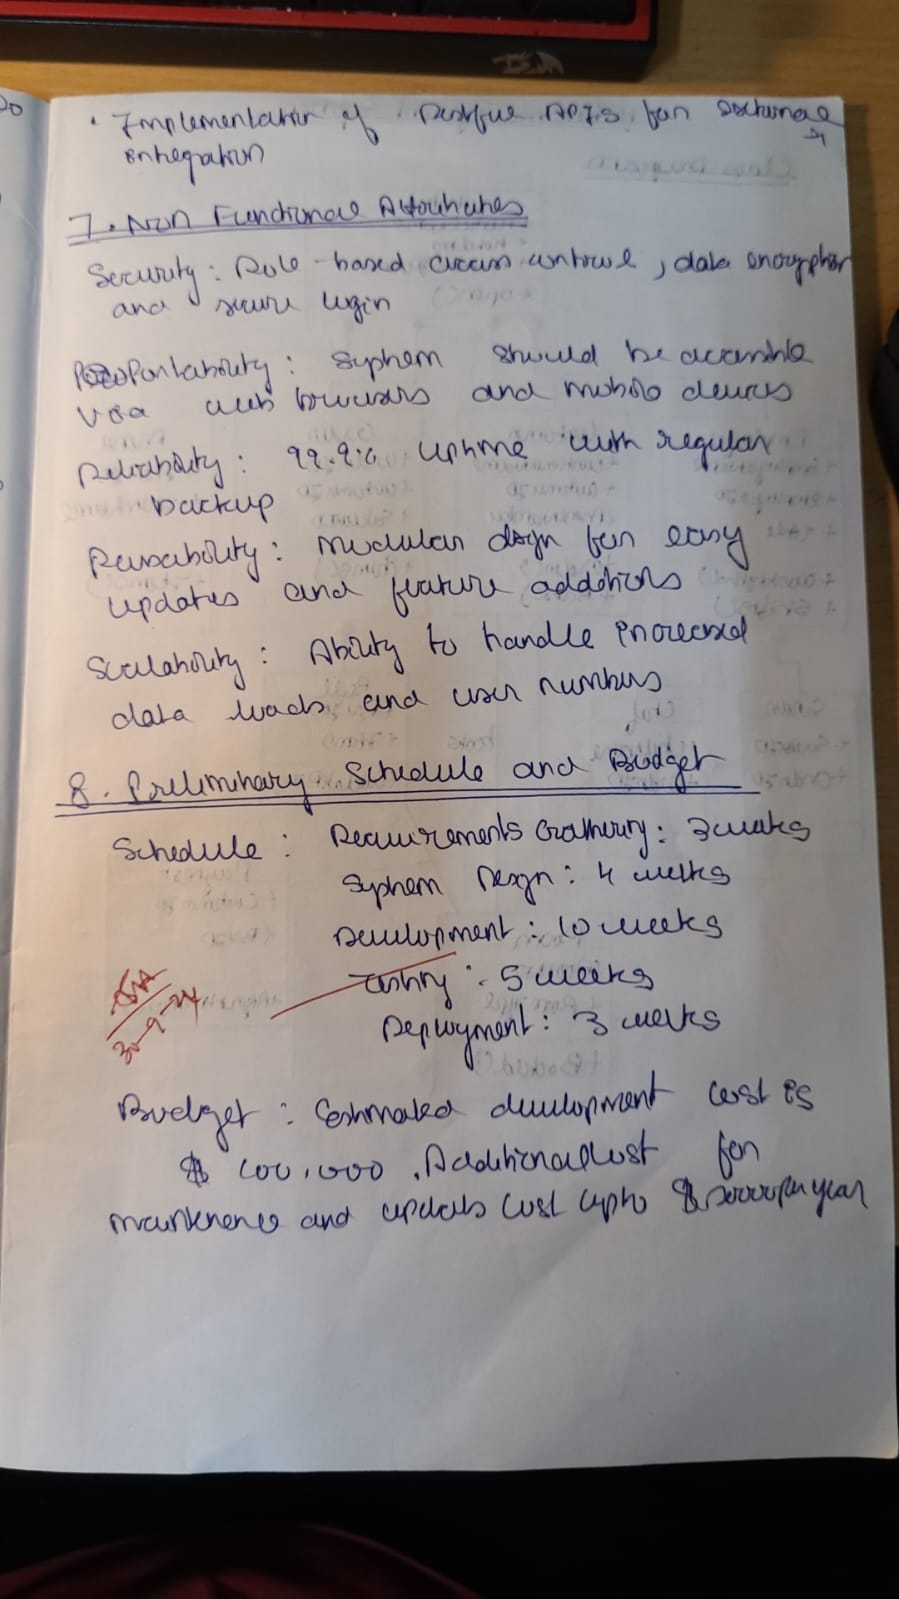 • Implementation of Restful APIs for external
integration
7. Non Functional Attributes
Security : Role-based access control, data encryption
and secure login
Portability : System should be accessible
via web browsers and mobile devices
Reliability : 99.9% uptime with regular
backup
Reusability : Modular design for easy
updates and feature additions
Scalability : Ability to handle increased
data loads and user numbers
8. Preliminary Schedule and Budget
Schedule : Requirements Gathering : 3 weeks
System Design : 4 weeks
Development : 10 weeks
Testing : 5 weeks
Deployment : 3 weeks
30-9-24
Budget : Estimated development cost is
$ 100,000. Additional cost for
maintenance and updates cost upto $ per year